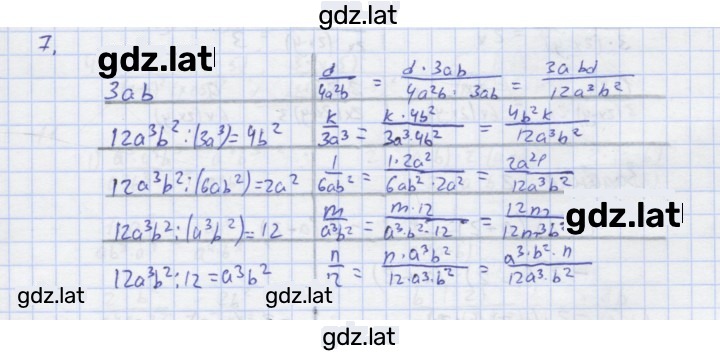 gdz.lat
7.
gdz.lat
3ab | d/4a²b = d · 3ab/4a²b · 3ab = 3abd/12a³b²
12a³b² : (3a³) = 4b² | k/3a³ = k · 4b²/3a³ · 4b² = 4b²k/12a³b²
12a³b² : (6ab²) = 2a² | 1/6ab² = 1 · 2a²/6ab² · 2a² = 2a²/12a³b²
12a³b² : (a³b²) = 12 | m/a³b² = m · 12/a³ · b² · 12 = 12m
gdz.lat
12a³b² : 12 = a³b² | n/12 = n · a³b²/12 · a³ · b² = a³ · b² · n/12a³ · b²
gdz.lat
gdz.lat
gdz.lat